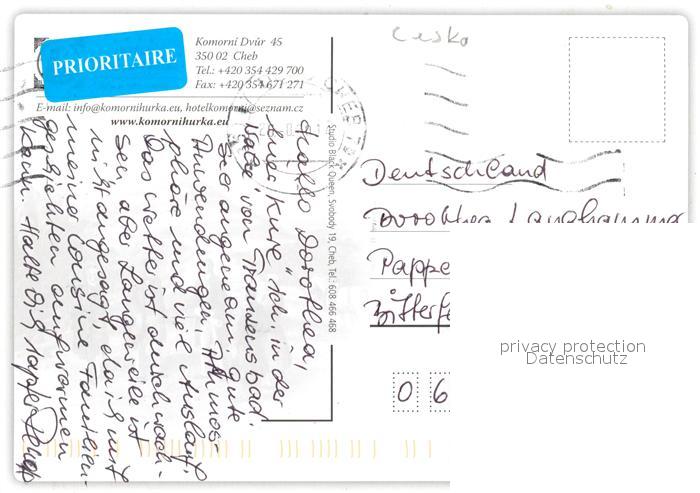 PRIORITAIRE
Komorní Dvůr 45
350 02 Cheb
Tel.: +420 354 429 700
Fax: +420 354 671 271
E-mail: info@komornihurka.eu, hotelkomorni@seznam.cz
www.komornihurka.eu
Česko
CHEB 1
Studio Black Queen, Svobody 19, Cheb, Tel.: 608 466 468
Hallo Dorothea,
hier kure ich, in der
Nähe von Franzensbad.
Sehr angenehm, gute
Anwendungen, Atmos-
phäre und viel Auslauf.
Das Wetter ist durchwach-
sen aber Langeweile ist
nicht angesagt, da ich mit
meine Cousine Familien-
geschichten aufwärmen
kann. Halte Dich tapfer
Deutschland
Dorothea Langhamme
Pappe
Bitterfe
0 6
privacy protection
Datenschutz